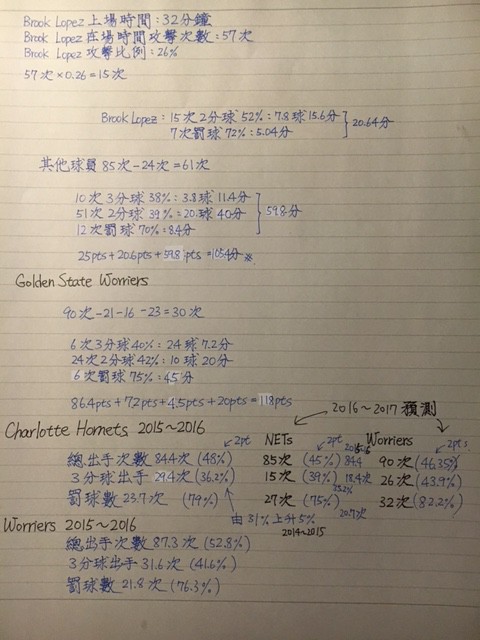 Brook Lopez 上場時間：32分鐘
Brook Lopez 在場時間攻擊次數：57次
Brook Lopez 攻擊比例：26%
57次×0.26=15次
Brook Lopez：15次2分球 52%：7.8球 15.6分
7次罰球 72%：5.04分
20.64分
其他球員 85次-24次=61次
10次3分球 38%：3.8球 11.4分
51次2分球 39%：20球 40分
12次罰球 70%：8.4分
59.8分
25pts+20.6pts+59.8pts=105.4分※
Golden State Worriers
90次-21-16-23=30次
6次3分球40%：24球 7.2分
24次2分球42%：10球 20分
6次罰球 75%：4.5分
86.4pts+7.2pts+4.5pts+20pts=118pts
2016~2017 預測
Charlotte Hornets 2015~2016
2pt NETs 2pt 2015-16 Worriers 2pts
總出手次數 84.4次 (48%) 85次 (45%) 84.4 90次 (46.35%)
3分球出手 29.4次 (36.2%) 15次 (39%) 18.4次 26次 (43.9%)
35.2%
罰球數 23.7次 (79%) 27次 (75%) 20.7次 32次 (82.2%)
由31%上升5%
2014~2015
Worriers 2015~2016
總出手次數 87.3次 (52.8%)
3分球出手 31.6次 (41.6%)
罰球數 21.8次 (76.3%)